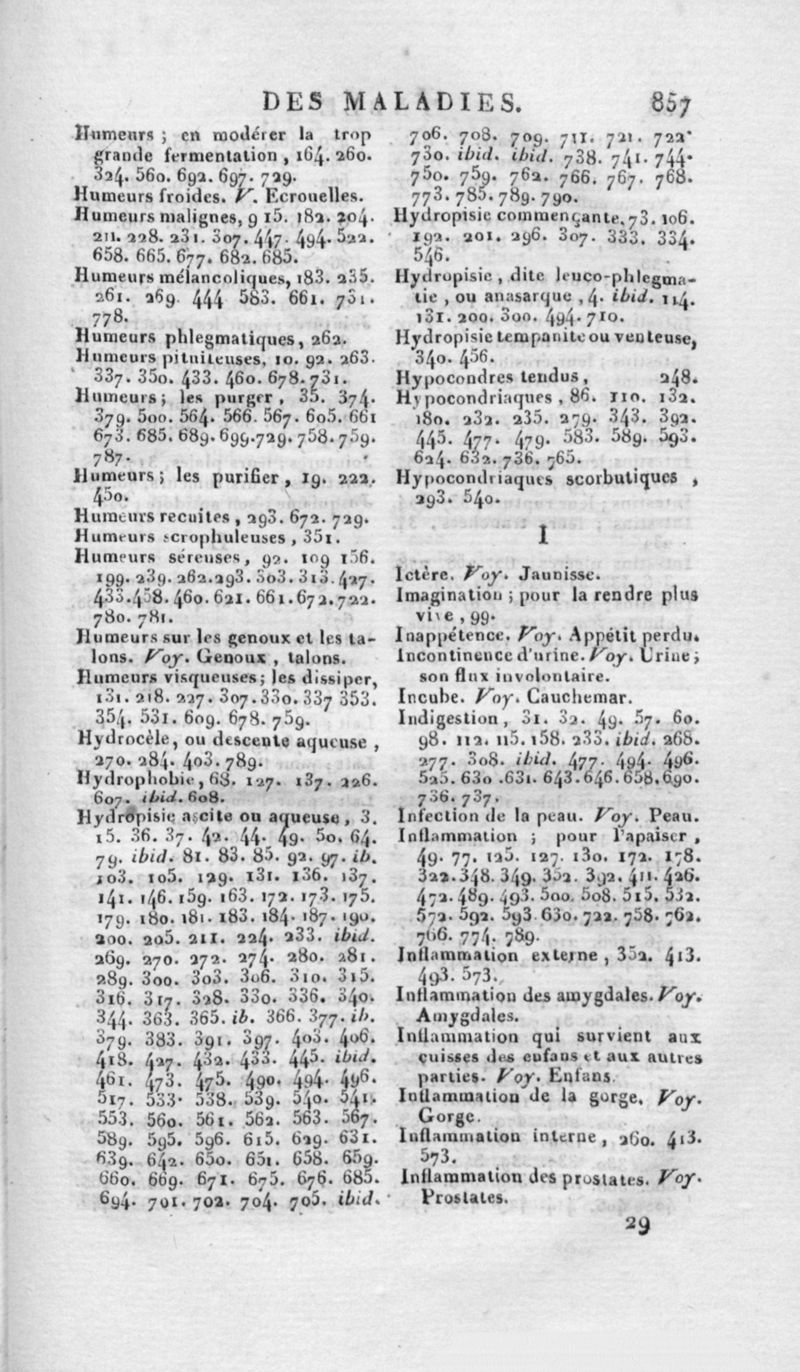 DES MALADIES. 857
Humeurs ; en modérer la trop
grande fermentation , 164. 260.
324. 560. 692. 697. 729.
Humeurs froides. V. Ecrouelles.
Humeurs malignes, 9 15. 182. 204.
211. 228. 231. 307. 447. 494. 522.
658. 665. 677. 682. 685.
Humeurs mélancoliques, 183. 235.
261. 269. 444 583. 661. 731.
778.
Humeurs phlegmatiques, 262.
Humeurs pituiteuses, 10. 92. 263.
337. 350. 433. 460. 678. 731.
Humeurs; les purger, 35. 374.
379. 500. 564. 566. 567. 605. 661
673. 685. 689. 699.729. 758. 759.
787.
Humeurs ; les purifier, 19. 222.
450.
Humeurs recuites , 293. 672. 729.
Humeurs scrophuleuses , 351.
Humeurs séreuses, 92. 109 156.
199. 239. 262.293. 303. 313.427.
433.458. 460. 621. 661.672.722.
780. 781.
Humeurs sur les genoux et les ta-
lons. Voy. Genoux , talons.
Humeurs visqueuses; les dissiper,
131. 218. 227. 307.330. 337 353.
354. 531. 609. 678. 759.
Hydrocèle, ou descente aqueuse ,
270. 284. 403. 789.
Hydrophobie, 68. 127. 137. 226.
607. ibid. 608.
Hydropisie ascite ou aqueuse, 3.
15. 36. 37. 42. 44. 49. 50. 64.
79. ibid. 81. 83. 85. 92. 97. ib.
103. 105. 129. 131. 136. 137.
141. 146. 159. 163. 172. 173. 175.
179. 180. 181. 183. 184. 187. 190.
200. 205. 211. 224. 233. ibid.
269. 270. 272. 274. 280. 281.
289. 300. 303. 306. 310. 315.
316. 317. 328. 330. 336. 340.
344. 363. 365. ib. 366. 377. ib.
379. 383. 391. 397. 403. 406.
418. 427. 432. 433. 445. ibid.
461. 473. 475. 490. 494. 496.
517. 533. 538. 539. 540. 541.
553. 560. 561. 562. 563. 567.
589. 595. 596. 615. 629. 631.
639. 642. 650. 651. 658. 659.
660. 669. 671. 675. 676. 685.
694. 701. 702. 704. 705. ibid.
706. 708. 709. 711. 721. 722.
730. ibid. ibid. 738. 741. 744.
750. 759. 762. 766. 767. 768.
773. 785. 789. 790.
Hydropisie commençante, 73. 106.
192. 201. 296. 307. 333. 334.
546.
Hydropisie , dite leuco-phlegma-
tie , ou anasarque , 4. ibid. 114.
131. 200. 300. 494. 710.
Hydropisie tempanite ou venteuse,
340. 456.
Hypocondres tendus, 248.
Hypocondriaques , 86. 110. 132.
180. 232. 235. 279. 343. 392.
445. 477. 479. 583. 589. 593.
624. 632. 736. 765.
Hypocondriaques scorbutiques ,
293. 540.
I
Ictère. Voy. Jaunisse.
Imagination ; pour la rendre plus
vive , 99.
Inappétence. Voy. Appétit perdu.
Incontinence d'urine. Voy. Urine;
son flux involontaire.
Incube. Voy. Cauchemar.
Indigestion, 31. 32. 49. 57. 60.
98. 112. 115. 158. 233. ibid. 268.
277. 308. ibid. 477. 494. 496.
525. 630 .631. 643.646.658.690.
736. 737.
Infection de la peau. Voy. Peau.
Inflammation ; pour l'apaiser ,
49. 77. 125. 127. 130. 172. 178.
322.348. 349. 352. 392. 411. 426.
472. 489. 493. 500. 508. 515. 532.
572. 592. 593 630. 722. 758. 762.
766. 774. 789.
Inflammation externe , 352. 413.
493. 573.
Inflammation des amygdales. Voy.
Amygdales.
Inflammation qui survient aux
cuisses des enfans et aux autres
parties. Voy. Enfans.
Inflammation de la gorge. Voy.
Gorge.
Inflammation interne, 260. 413.
573.
Inflammation des prostates. Voy.
Prostates.
29